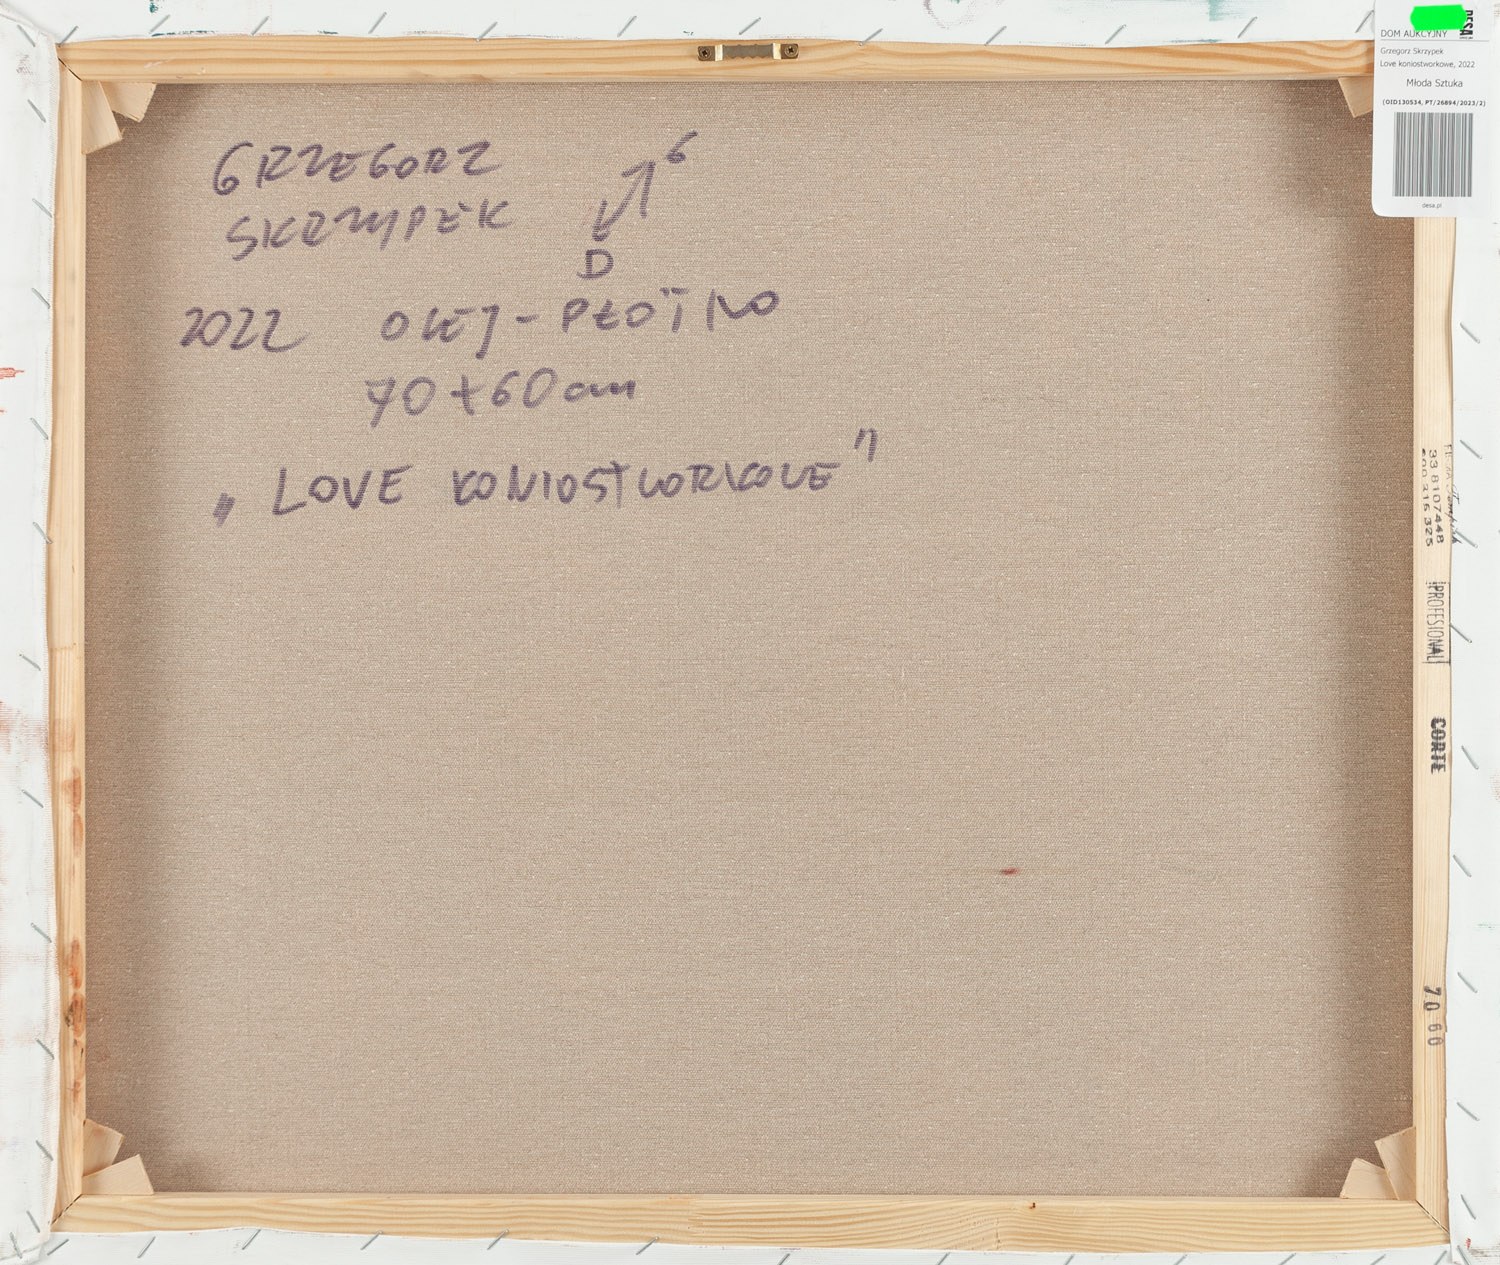 GRZEGORZ
SKRZYPEK
G
D
2022 OLEJ - PŁÓTNO
70 x 60 cm
„LOVE KONIOSTWORKOWE"
DESA
DOM AUKCYJNY
Grzegorz Skrzypek
Love koniostworkowe, 2022
Młoda Sztuka
(OID130534, PT/26894/2023/2)
desa.pl
33 8107448
316 325
PROFESIONAL
CORTE
70 60